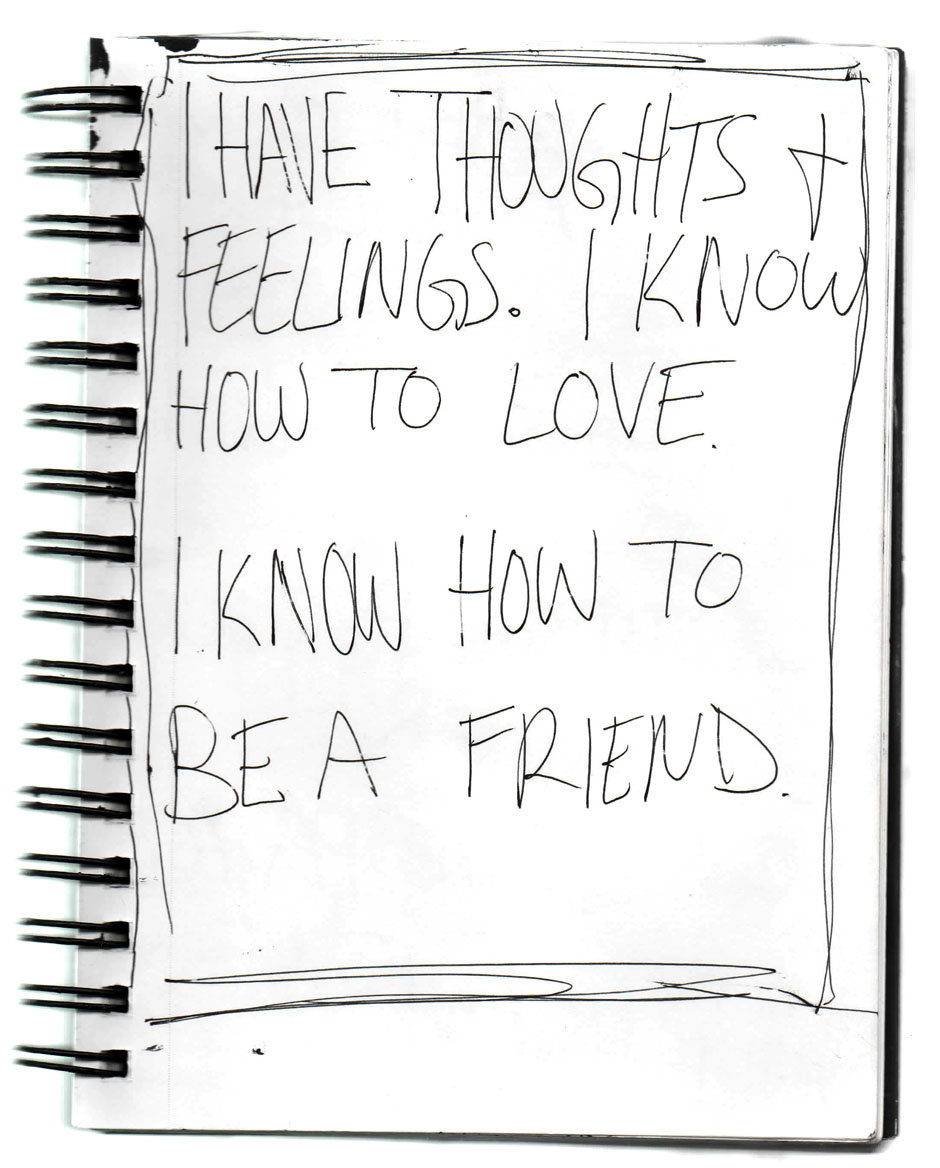 I HAVE THOUGHTS +
FEELINGS. I KNOW
HOW TO LOVE.
I KNOW HOW TO
BE A FRIEND.